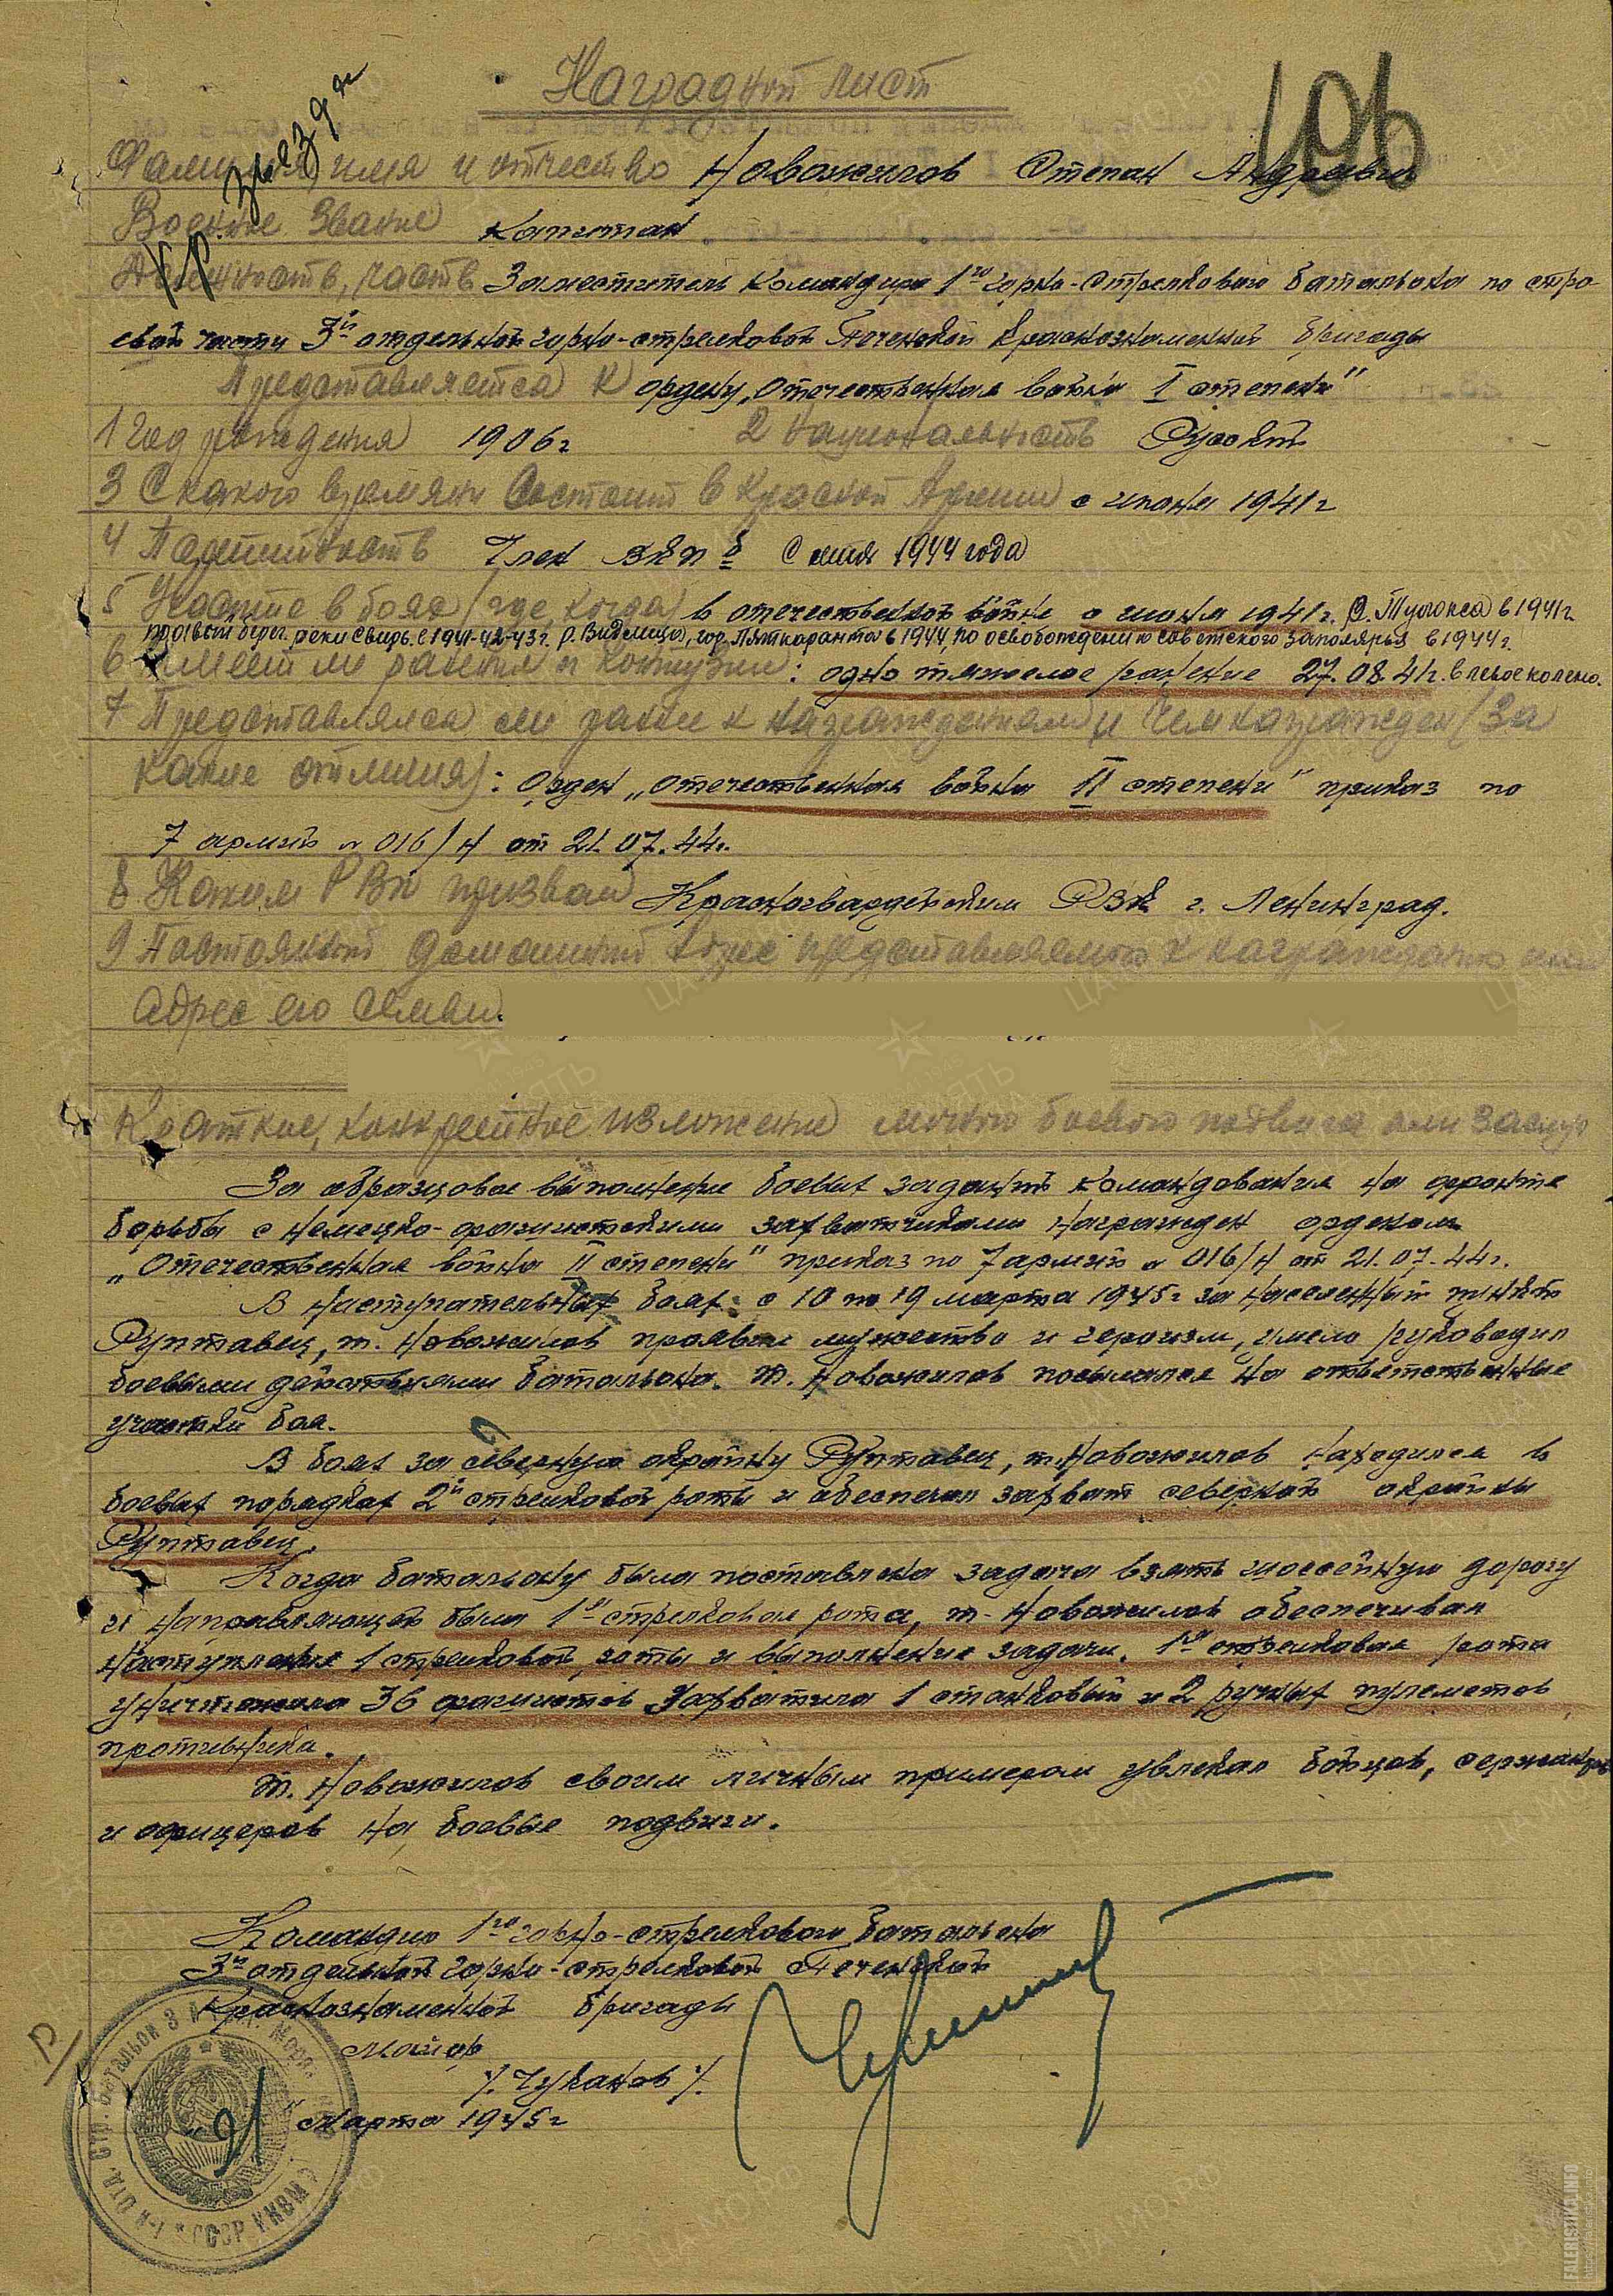 Наградной лист
106
Кр. Звезды
Фамилия, имя и отчество Новожилов Степан Андреевич
Военное звание капитан
Должность, часть Заместитель командира 1го горно-стрелкового батальона по стро-
евой части 3й отдельной горно-стрелковой Печенской Краснознаменной бригады
Представляется к ордену „Отечественная война I степени"
1 Год рождения 1906г 2 Национальность Русский
3 С какого времяни состоит в Красной Армии с июня 1941г
4 Партийность Член ВКП б с июля 1944 года
5 Участие в боях (где, когда) в отечественной войне с июня 1941г. р. Тулокса в 1941г.
правый берег реки Свирь с 1941-42-43г. р. Видлица, гор. Питкаранта в 1944, по освобождению Советского Заполярья в 1944г.
6 Имеет ли ранения и контузии: одно тяжелое ранение 27.08.41г. в левое колено.
7 Представлялся ли ранее к награждениям и чем награжден (за
какие отличия): Орден „Отечественная война II степени" приказ по
7 армии № 016/н от 21.07.44г.
8 Каким РВК призван Красногвардейским РВК г. Ленинград.
9 Постоянный домашний адрес представляемого к награждению или
адрес его семьи.
Краткое, конкретное изложение личного боевого подвига или заслуг
За образцовое выполнение боевых заданий командования на фронте
борьбы с немецко-фашистскими захватчиками награжден орденом
„Отечественная война II степени" приказ по 7 армии № 016/н от 21.07.44г.
В наступательных боях с 10 по 19 марта 1945г за населенный пункт
Руптавец, т. Новожилов проявил мужество и героизм, умело руководил
боевыми действиями батальона. Т. Новожилов посылался на ответственные
участки боя.
В боях за северную окрайну Руптавец, т. Новожилов находился в
боевых порядках 2й стрелковой роты и обеспечил захват северной окрайны
Руптавец.
Когда батальону была поставлена задача взять шоссейную дорогу
и направляющей была 1я стрелковая рота, т. Новожилов обеспечивал
наступление 1 стрелковой роты и выполнение задачи. 1я стрелковая рота
уничтожила 36 фашистов захватила 1 станковый и 2 ручных пулеметов
противника.
Т. Новожилов своим личным примером увлекал бойцов, сержантов
и офицеров на боевые подвиги.
Командир 1го горно-стрелкового батальона
3й отдельной горно-стрелковой Печенской
Краснознаменной бригады
майор
/. Чуканов /.
21 марта 1945г
FALERISTIKA.INFO